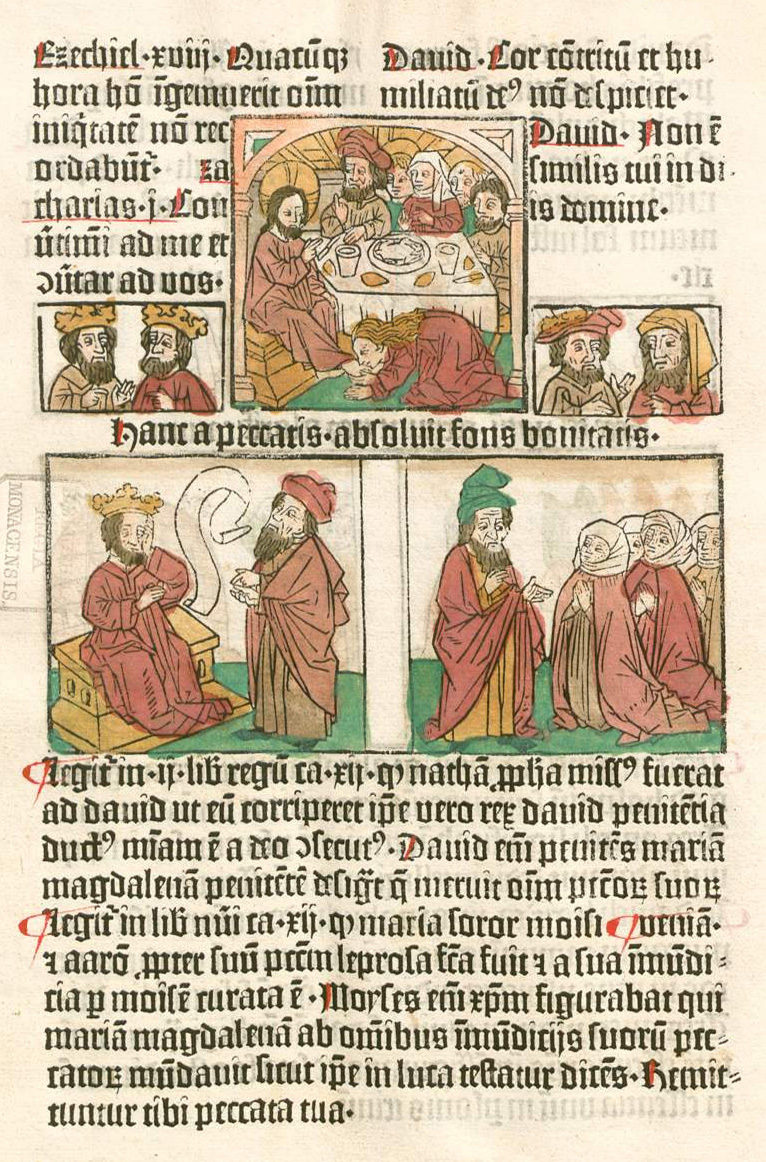 Ezechiel·xviij· Quacūqꝫ
hora hō īgemuerit oīm
iniq̄tatē nō rec
ordabūt᷑· za
charias·j·Con
ūtimī ad me et
ↄūtar ad vos·
David·Cor cōtritū et hu-
miliatū deꝰ nō despiciet·
David· Non ē
similis tui in di-
is domine·
Hanc a peccatis·absoluit fons bonitatis·
Legit᷑ in·ij·lib regū ca·xij·ꝙ nathā ꝓpħa missꝰ fuerat
ad david ut eū corriperet ip̄e vero rex david penitētia
ductꝰ mīam ē a deo ↄsecutꝰ·David em̄ penitēs mariā
magdalenā penitētē desig᷑t q̄ meruit oīm pctōꝝ suoꝝ
Legit᷑ in lib nūi ca·xij·ꝙ maria soror moisi veniā·
⁊ aarō ꝓpter suū pctm̄ leprosa fcā fuit ⁊ a sua īmūdi-
cia ꝑ moisē curata ē·Moyses em̄ xp̄m figurabat qui
mariā magdalenā ab omībus īmūdicijs suorū pec-
catoꝝ mūdavit sicut ip̄e in luca testatur dicēs·Remit-
tuntur tibi peccata tua·
MONACENSIS.